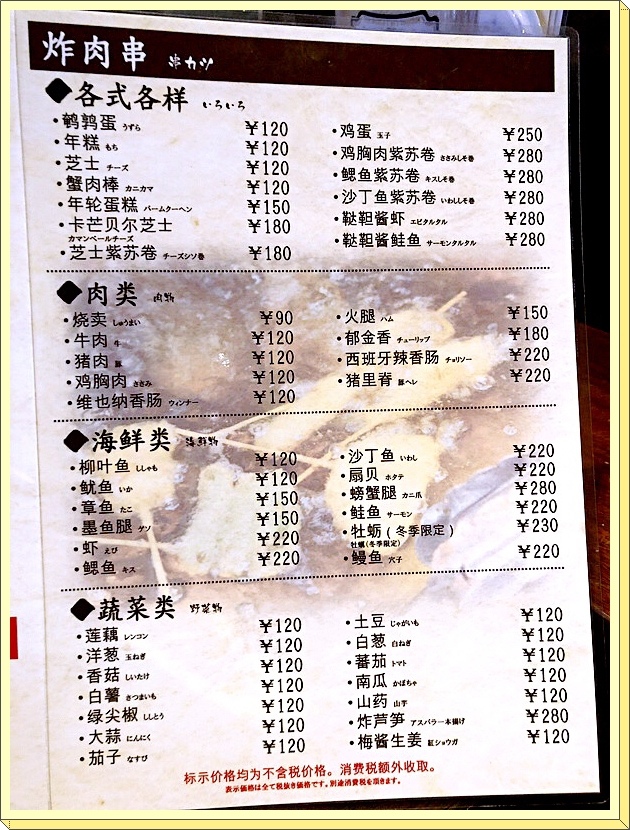 炸肉串 串カツ
◆各式各样 いろいろ
•鹌鹑蛋 うずら ¥120
•年糕 もち ¥120
•芝士 チーズ ¥120
•蟹肉棒 カニカマ ¥120
•年轮蛋糕 バームクーヘン ¥150
•卡芒贝尔芝士 ¥180
カマンベールチーズ
•芝士紫苏卷 チーズシソ巻 ¥180
•鸡蛋 玉子 ¥250
•鸡胸肉紫苏卷 ささみしそ巻 ¥280
•鳃鱼紫苏卷 キスしそ巻 ¥280
•沙丁鱼紫苏卷 いわししそ巻 ¥280
•鞑靼酱虾 エビタルタル ¥280
•鞑靼酱鲑鱼 サーモンタルタル ¥280
◆肉类 肉物
•烧卖 しゅうまい ¥90
•牛肉 牛 ¥120
•猪肉 豚 ¥120
•鸡胸肉 ささみ ¥120
•维也纳香肠 ウィンナー ¥120
•火腿 ハム ¥150
•郁金香 チューリップ ¥180
•西班牙辣香肠 チョリソー ¥220
•猪里脊 豚ヘレ ¥220
◆海鲜类 海鮮物
•柳叶鱼 ししゃも ¥120
•鱿鱼 いか ¥120
•章鱼 たこ ¥150
•墨鱼腿 ゲソ ¥150
•虾 えび ¥220
•鳃鱼 キス ¥220
•沙丁鱼 いわし ¥220
•扇贝 ホタテ ¥220
•螃蟹腿 カニ爪 ¥280
•鲑鱼 サーモン ¥220
•牡蛎(冬季限定) ¥230
牡蠣(冬季限定)
•鳗鱼 穴子 ¥220
◆蔬菜类 野菜物
•莲藕 レンコン ¥120
•洋葱 玉ねぎ ¥120
•香菇 しいたけ ¥120
•白薯 さつまいも ¥120
•绿尖椒 ししとう ¥120
•大蒜 にんにく ¥120
•茄子 なすび ¥120
•土豆 じゃがいも ¥120
•白葱 白ねぎ ¥120
•蕃茄 トマト ¥120
•南瓜 かぼちゃ ¥120
•山药 山芋 ¥120
•炸芦笋 アスパラ一本揚げ ¥280
•梅酱生姜 紅ショウガ ¥120
标示价格均为不含税价格。消费税额外收取。
表示価格は全て税抜き価格です。別途消費税を頂きます。